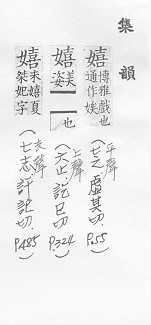 集韻
嬉 博雅戲也通作娭
平聲
(七之, 虛其切, P.55)
嬉 美姿
一曰
也
上聲
(六止, 許已切, P.324)
嬉 末嬉夏桀妃字
去聲
(七志, 許記切, P.485)